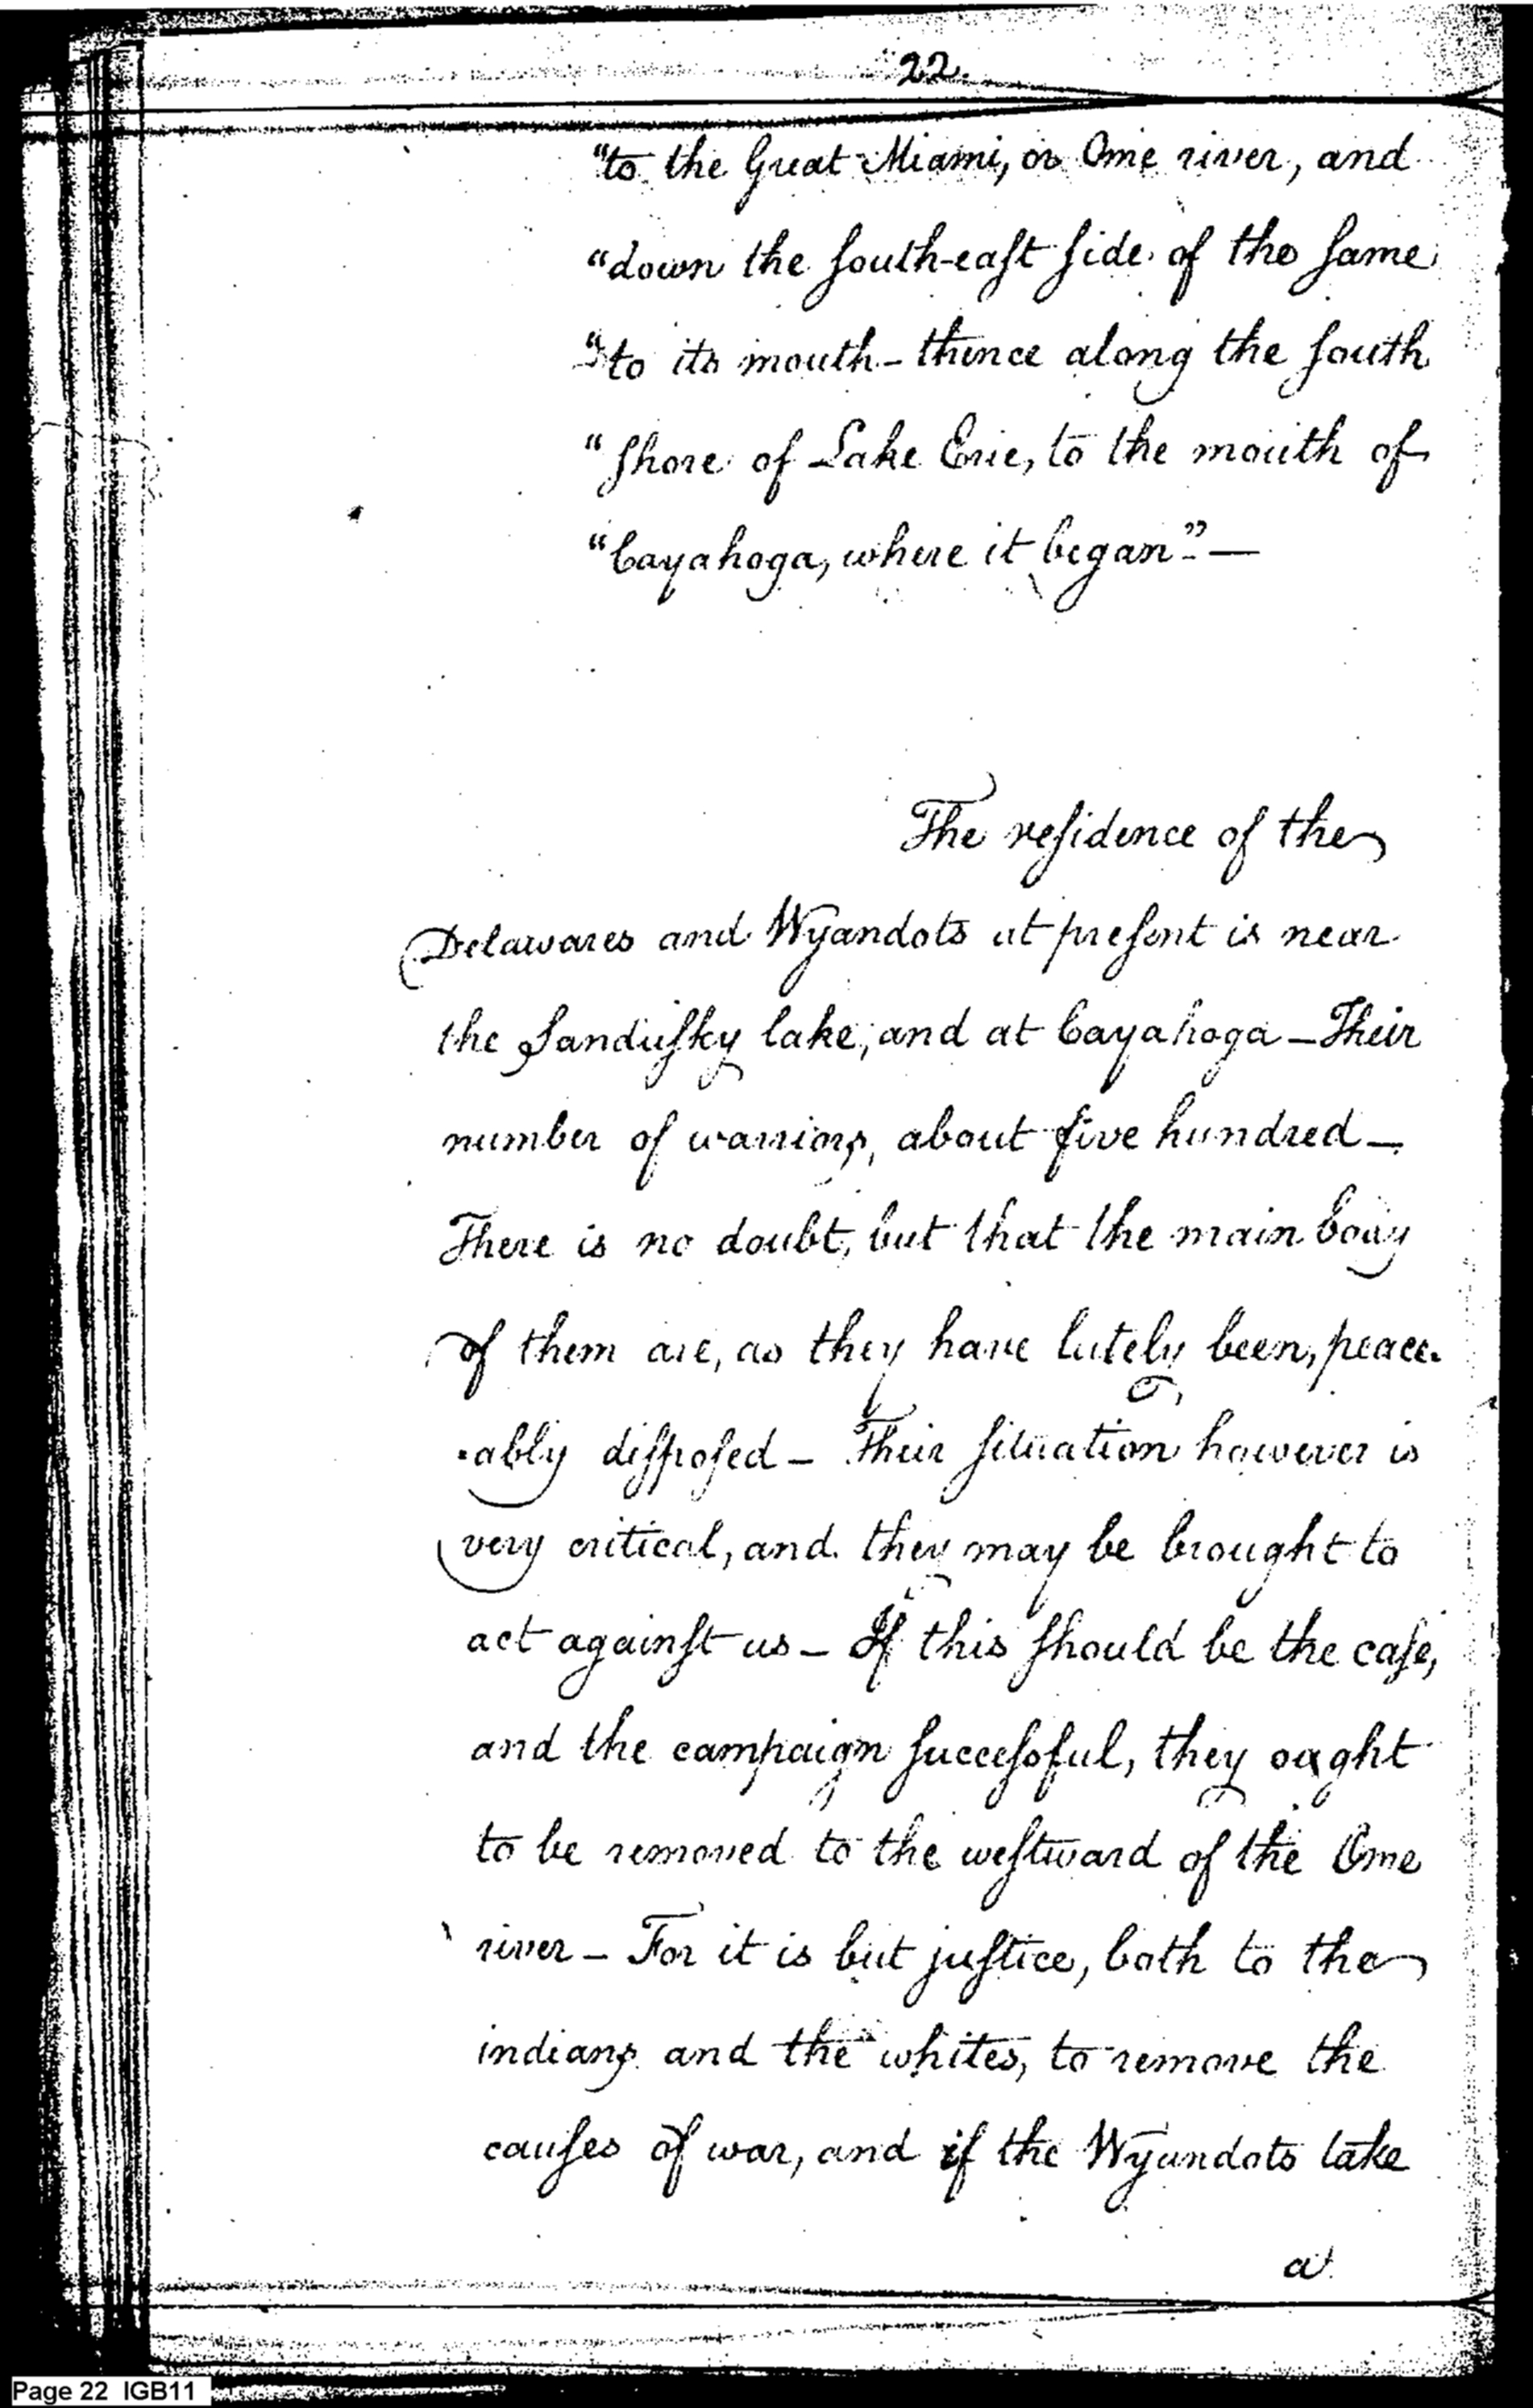 22.
"to the Great Miami, or Ome river, and
"down the ſouth-eaſt ſide of the ſame
"to its mouth – thence along the ſouth
"ſhore of Lake Erie, to the mouth of
"Cayahoga, where it began" –
The reſidence of the
Delawares and Wyandots at preſent is near
the Sanduſky lake, and at Cayahoga – Their
number of warriors, about five hundred –
There is no doubt, but that the main body
of them are, as they have lately been, peace-
-ably diſpoſed – Their ſituation however is
very critical, and they may be brought to
act againſt us – If this ſhould be the caſe,
and the campaign ſucceſsful, they ought
to be removed to the weſtward of the Ome
river – For it is but juſtice, both to the
indians and the whites, to remove the
cauſes of war, and if the Wyandots take
a
Page 22 IGB11